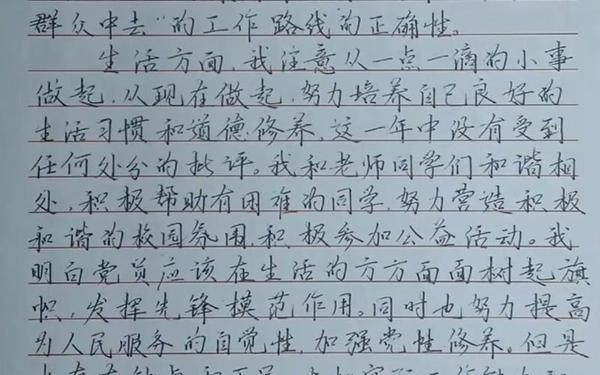 群众中去"的工作路线的正确性。
生活方面,我注意从一点一滴的小事
做起,从现在做起,努力培养自己良好的
生活习惯和道德修养,这一年中没有受到
任何处分的批评。我和老师同学们和谐相
处,积极帮助有困难的同学,努力营造积极
和谐的校园氛围,积极参加公益活动。我
明白党员应该在生活的方方面面树起旗
帜,发挥先锋模范作用。同时也努力提高
为人民服务的自觉性,加强党性修养。但是